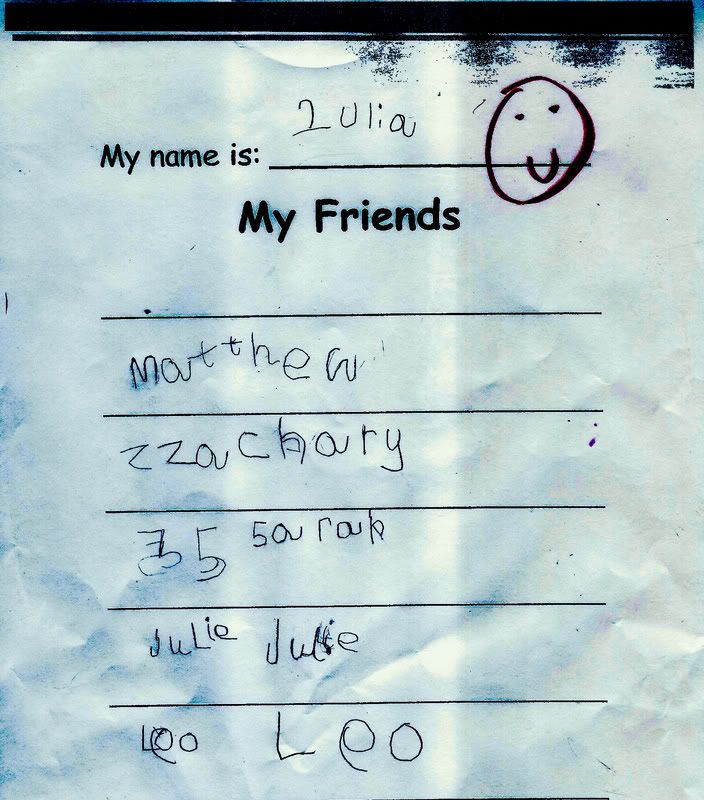 Julia
My name is:
My Friends
matthew
zzachary
35 sarah
Julie Julie
Leo Leo